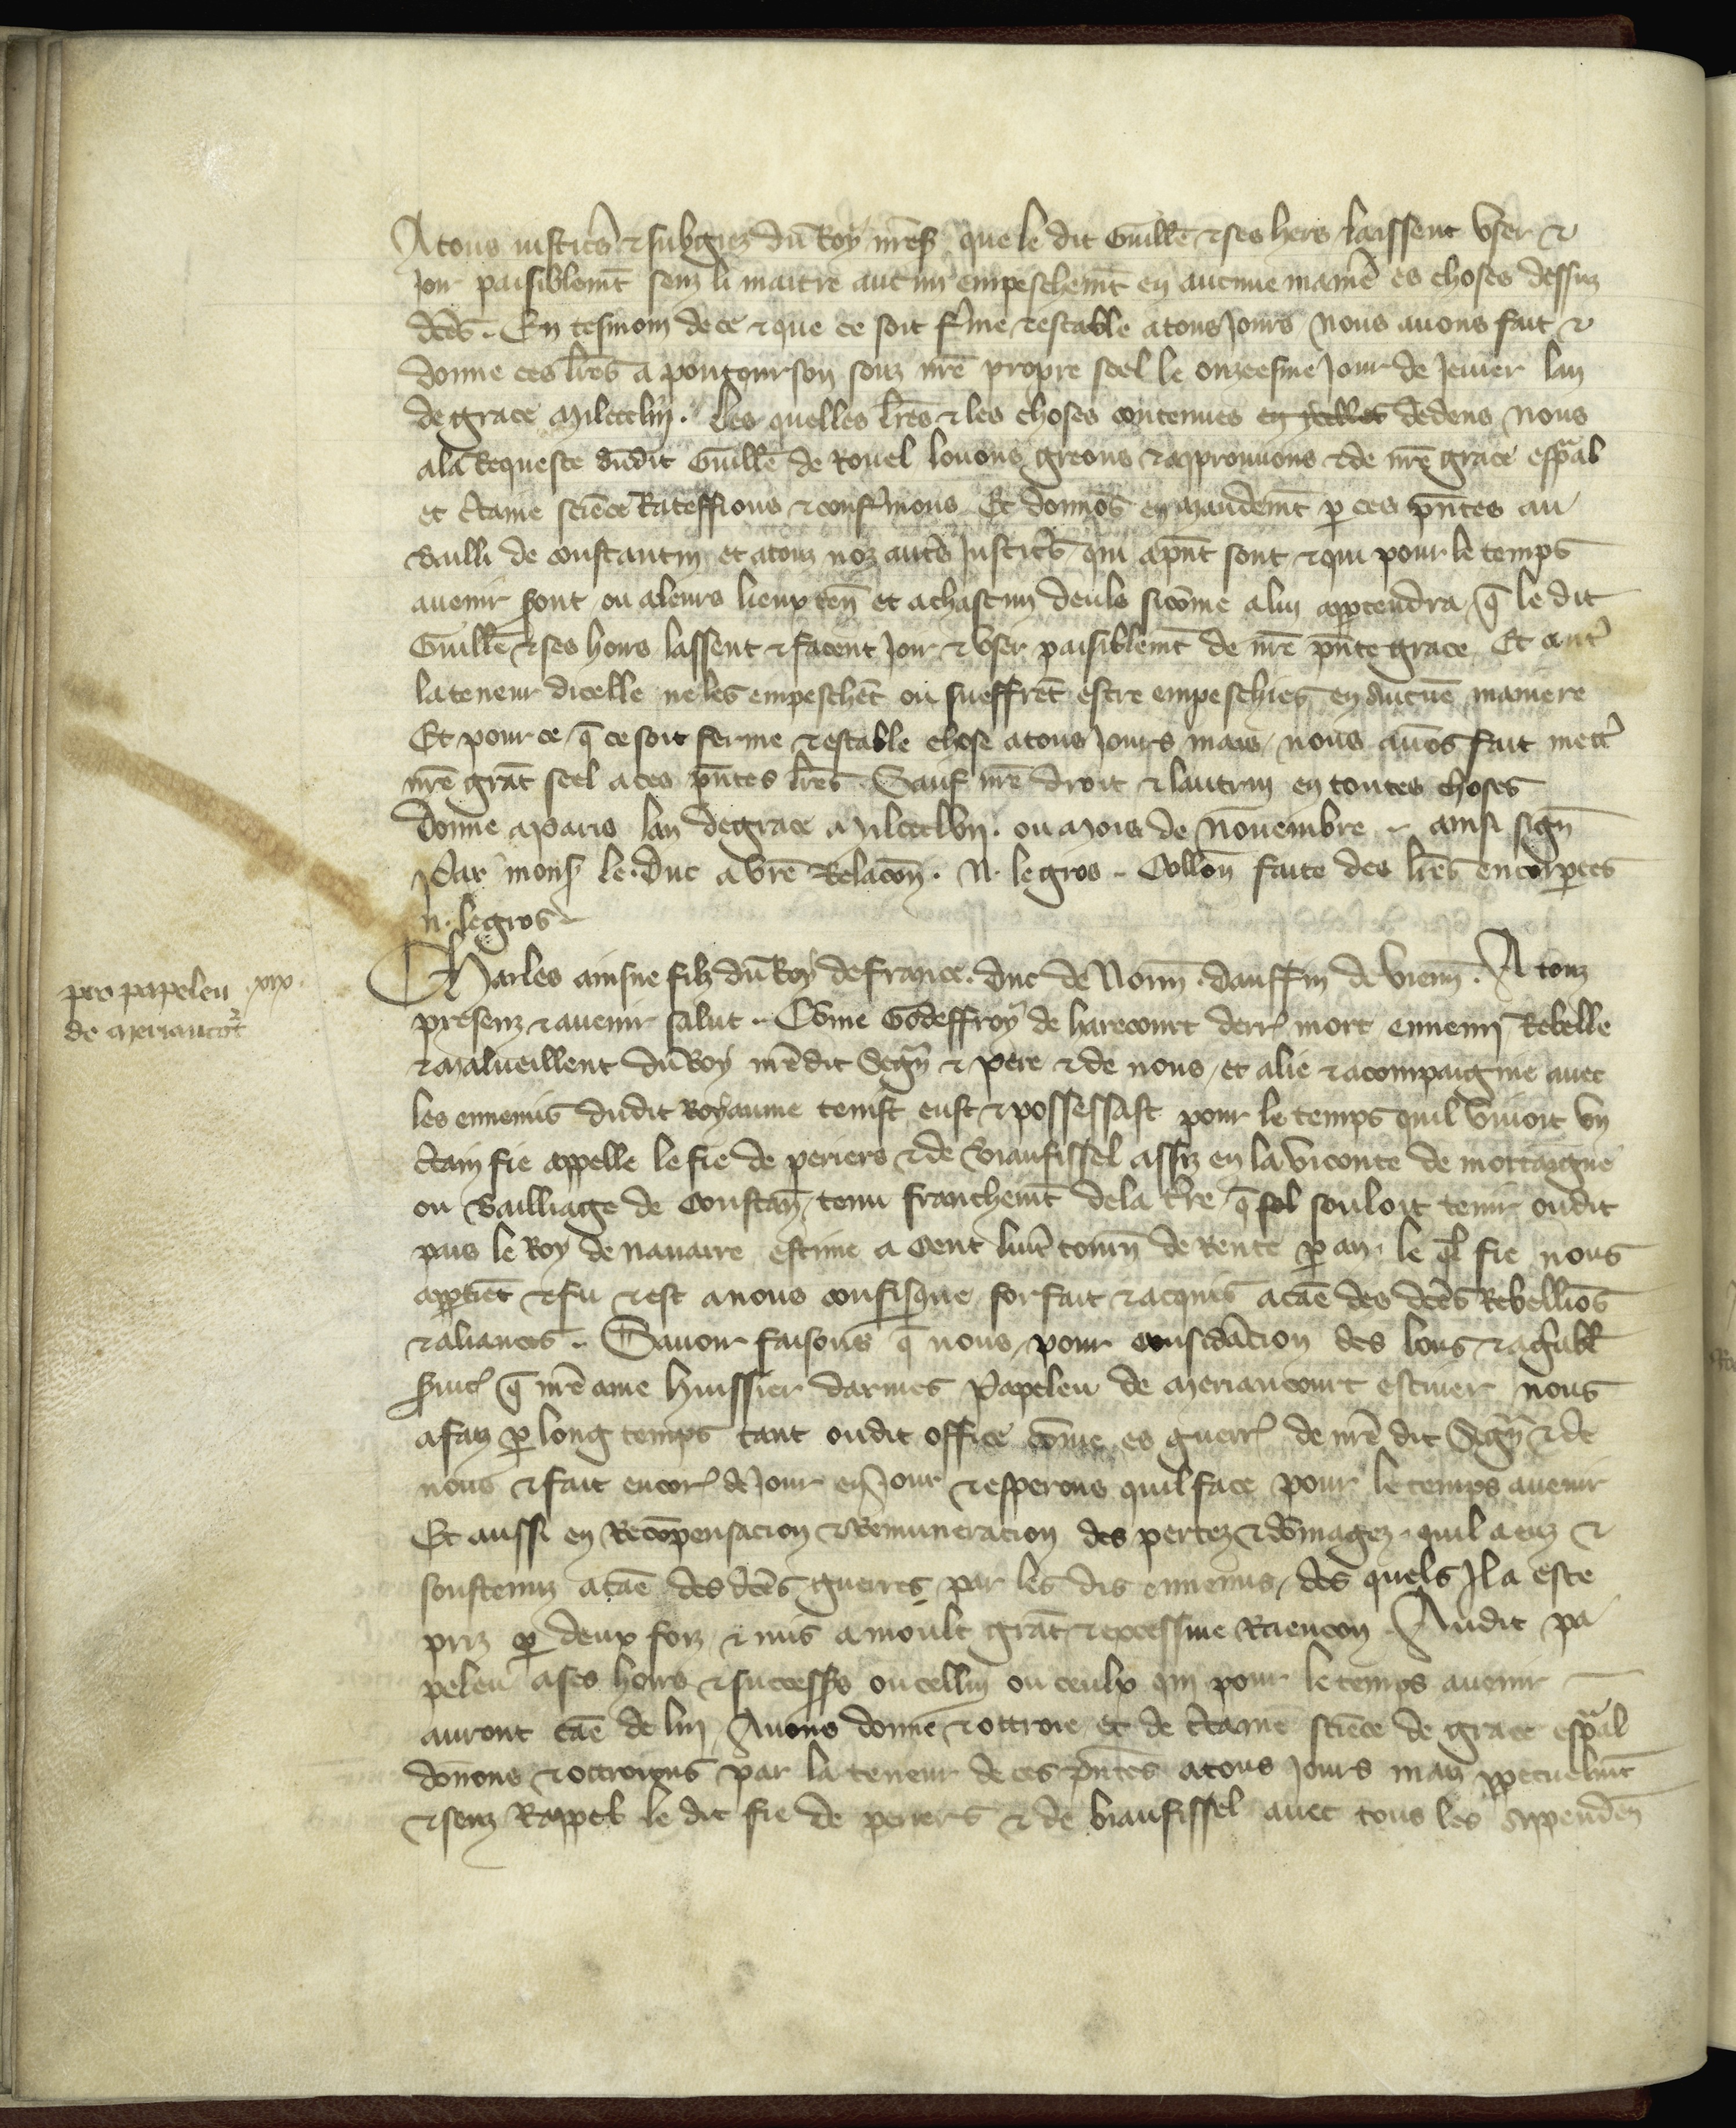 A tous iustic̃ & subgiez du Roy nr̃eš que le dit Guill̃e & ses hers laissent user &
Joir paisiblemẽt senz li maitre aucun empeschemẽt en aucune maniẽ es choses dessuz
dc̃es. En tesmoin de ce & que ce soit fẽme & estable a tous Jours nous auons fait &
donne ces lr̃es a pontourson souz nr̃e propre seel le onzeesme Jour de Jeuier lan
de grace Mil ccc lvj. Les quelles lr̃es & les choses contenues en ycelles dedens nous
a la Requeste dudit Guill̃e de Rouel louons greons & approuuons & de nr̃e grace esp̃al
et c̃taine sciẽce Rateffions & conf̃mons Et donnõs en mandemẽt p̱ ces pñtes au
Bailli de constantin et a touz noz autr̃s Justic̃s qui apñt sont & qui pour le temps
auenir s̃ont ou a leurs lieux teñ et a chascun deuls sicõme a lui app̱tendra q̃ le dit
Guill̃e & ses hoirs lassent & facent Joir & user paisiblemẽt de nr̃e pñte grace Et cont̃
la teneur dicelle ne les empeschẽt ou sueffrẽt estre empeschies en aucũe maniere
Et pour ce q̃ ce soit ferme & estable chose a tous Jours mais nous auõs fait mett̃
nr̃e grãt seel a ces pñtes lr̃es. Sauf nr̃e droit & lautrui en toutes choses
Donne a Paris lan de grace Mil ccc lvij. ou mois de Nouembre - ainsi sign̄
Par mons̃ le Duc a vr̃e Relacõn. N. le gros - Collõn faite des lr̃es encorp̱ees
N. le gros
pro papeleu xix.
de meriancot̃
Charles ainsne filz du Roy de france. Duc de Norm̃. Dauffin de vienñ. A touz
presenz & auenir salut - Cõme Godeffroy de harecourt derr̃ mort ennemi Rebelle
& malueillent du Roy nr̃e dit Seign̄ & pere & de nous et alie & acompaignie auec
les ennemis dudit Royaume tenist eust & possessast pour le temps quil viuoit un
c̃tain fie appelle le fie de periers & de Biaufissel assiz en la viconte de mortaigne
ou Bailliage de Constañ, tenu franchemẽt de la t̃re q̃ sol souloit tenir oudit
pais le Roy de nauarre estime a Cent liur̃ tourñ de Rente p̱ an. le q̃l fie nous
app̱tiẽt & fu & est a nous confisque forfait & acquis a cãe des dc̃es Rebelliõs
& aliances. Sauoir faisons q̃ nous pour considãcion des bons & ag̃abl̃
s̃uic̃ q̃ nr̃e ame huissier darmes Papeleu de meriancourt escuier nous
a faiz p̱ long temps tant oudit office cõme es guerr̃ de nr̃e dit Seign̄ & de
nous & fait encor̃ de Jour en Jour & esperons quil face pour le temps auenir
Et aussi en Recõpensacion & Remuneracion des pertez & dõmagez quil a euz &
soustenuz a cãe des dc̃es guerres par les dis ennemis, des quels Il a este
priz p̱ deux foiz & mis a moult grãt & excessiue Raencon. Audit pa
peleu a ses hoirs & success̃s ou cellui ou ceulx qui pour le temps auenir
auront cãe de lui Auons donne & ottroie et de c̃taine sciẽce de grace esp̃al
donnons & ottroions par la teneur de ces pñtes a tous Jours mais pp̱etuelmẽt
& senz Rappel le dit fie de periers & de biaufissel auec tous les appenden̄